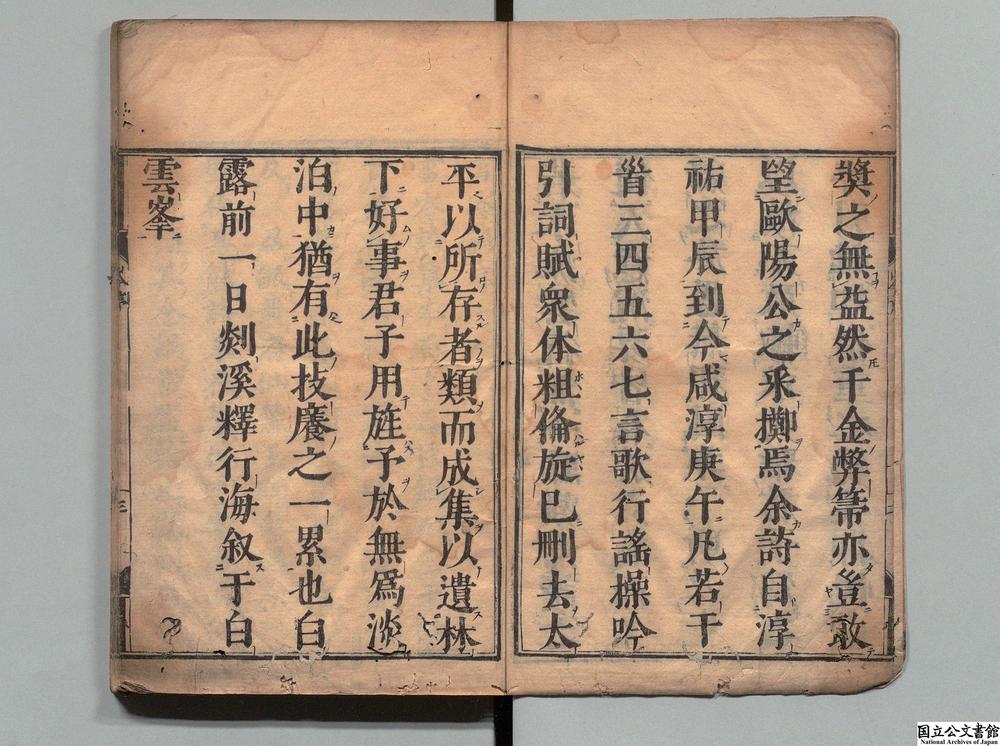 奬之無益然千金弊箒亦豈敢
望歐陽公之釆擲焉余詩自淳
祐甲辰到今咸淳庚午凡若干
首三四五六七言歌行謠操吟
引詞賦衆体粗俻旋已刪去太
平以所存者類而成集以遺林
下好事君子用旌予於無爲淡
泊中猶有此技癢之一累也白
露前一日剡溪釋行海叙于白
雲峯
国立公文書館
National Archives of Japan